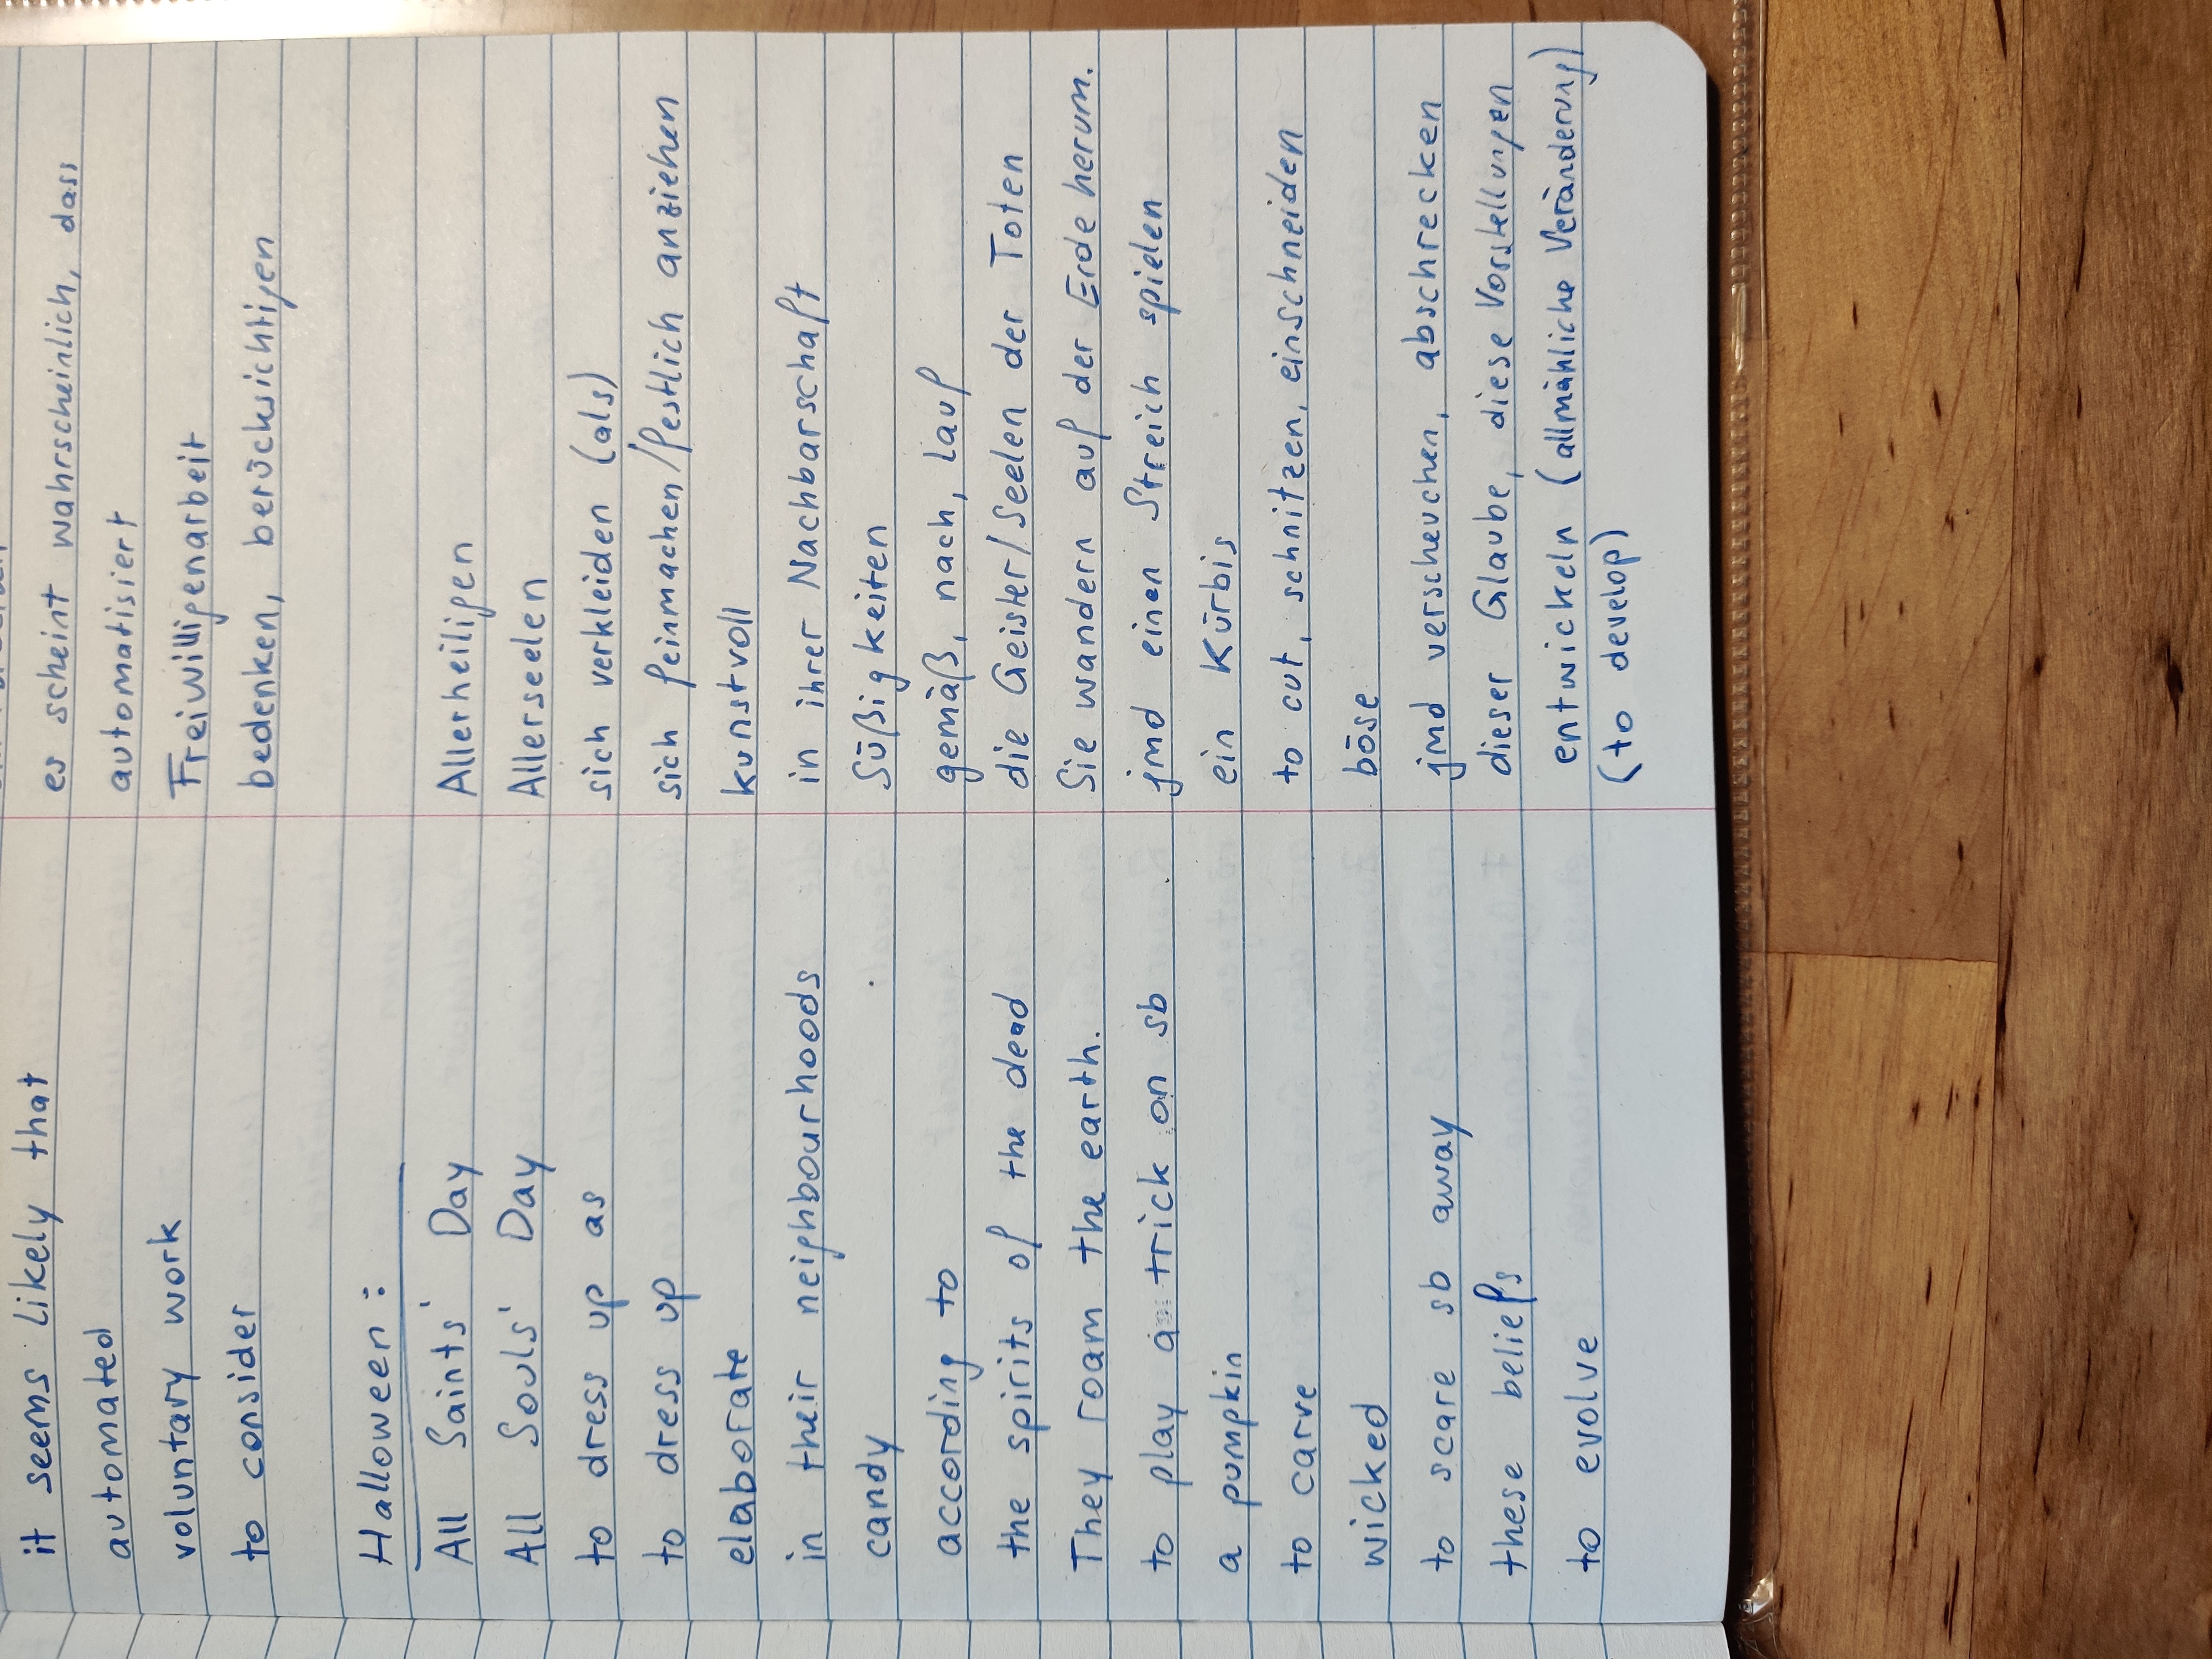 it seems likely that es scheint wahrscheinlich, dass
automated automatisiert
voluntary work Freiwilligenarbeit
to consider bedenken, berücksichtigen
Halloween:
All Saints' Day Allerheiligen
All Souls' Day Allerseelen
to dress up as sich verkleiden (als)
to dress up sich feinmachen/festlich anziehen
elaborate kunstvoll
in their neighbourhoods in ihrer Nachbarschaft
candy Süßigkeiten
according to gemäß, nach, lauf
the spirits of the dead die Geister/Seelen der Toten
They roam the earth. Sie wandern auf der Erde herum.
to play a trick on sb jmd einen Streich spielen
a pumpkin ein Kürbis
to carve to cut, schnitzen, einschneiden
wicked böse
to scare sb away jmd verscheuchen, abschrecken
these beliefs dieser Glaube, diese Vorstellungen
to evolve entwickeln (allmähliche Veränderung)
(to develop)